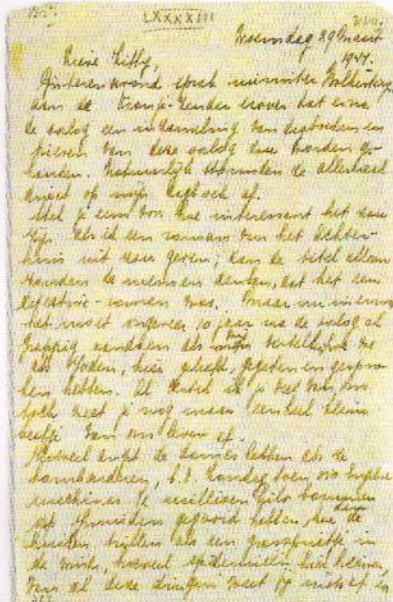 LXXXXIII
Woensdag 29 Maart
1944.
Lieve Kitty,
Gisterenavond sprak minister Bolkestein
aan de Oranje-zender erover dat er na
de oorlog een inzameling van dagboeken en
brieven van deze oorlog zou worden ge-
houden. Natuurlijk stormden ze allemaal
direct op mijn dagboek af.
Stel je eens voor hoe interessant het zou
zijn als ik een roman van het Achter-
huis uit zou geven; aan de titel alleen
zouden de mensen denken, dat het een
detective-roman was. Maar nu in ernst
het moet ongeveer 10 jaar na de oorlog al
grappig aandoen als wij vertellen hoe we
als Joden, hier geleefd, gegeten en gespro-
ken hebben. Al vertel ik je veel van ons
toch weet je nog maar een heel klein
beetje van ons leven af.
Hoeveel angst de dames hebben als ze
bombarderen, b.v. Zondag toen 350 Engelse
machines ½ millioen kilo bommen
op Ijmuiden gegooid hebben, hoe dan de
huizen trillen als een grassprietje in
de wind, hoeveel epidemieën hier heersen,
van al deze dingen weet jij niets af